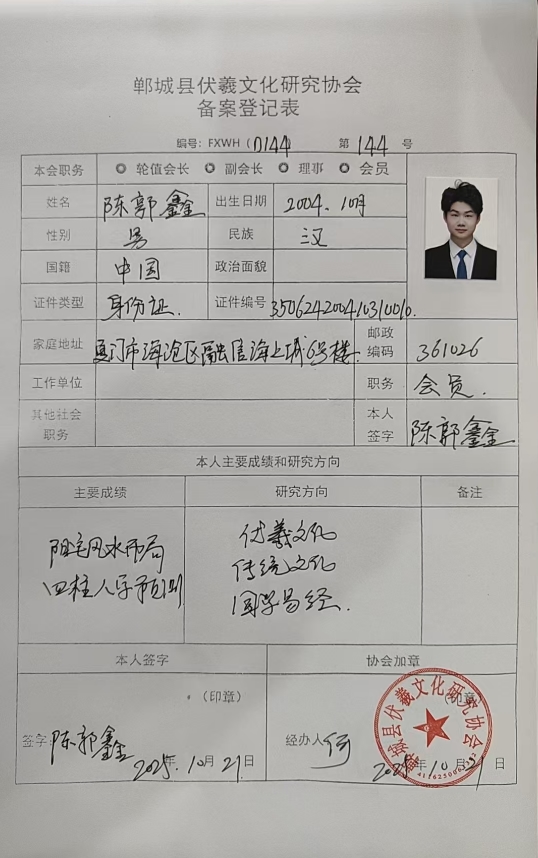 郸城县伏羲文化研究协会
备案登记表
编号：FXWH（0144） 第 144 号
本会职务 轮值会长 副会长 理事 会员
姓名 陈郭鑫 出生日期 2004.10月
性别 男 民族 汉
国籍 中国 政治面貌
证件类型 身份证. 证件编号 350624200410310010.
家庭地址 厦门市海沧区融信海上城6号楼. 邮政编码 361026
工作单位 职务 会员.
其他社会职务 本人签字 陈郭鑫
本人主要成绩和研究方向
主要成绩 研究方向 备注
阳宅风水布局 伏羲文化
四柱八字预测 传统文化
国学易经.
本人签字 协会加章
（印章） （印章）
签字 陈郭鑫 经办人 何
2025年10月21日 2025年10月21日
郸城县伏羲文化研究协会